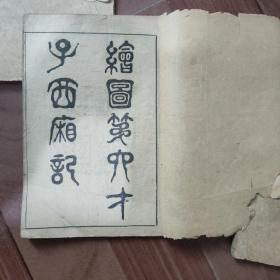 繪圖第六才
子西廂記